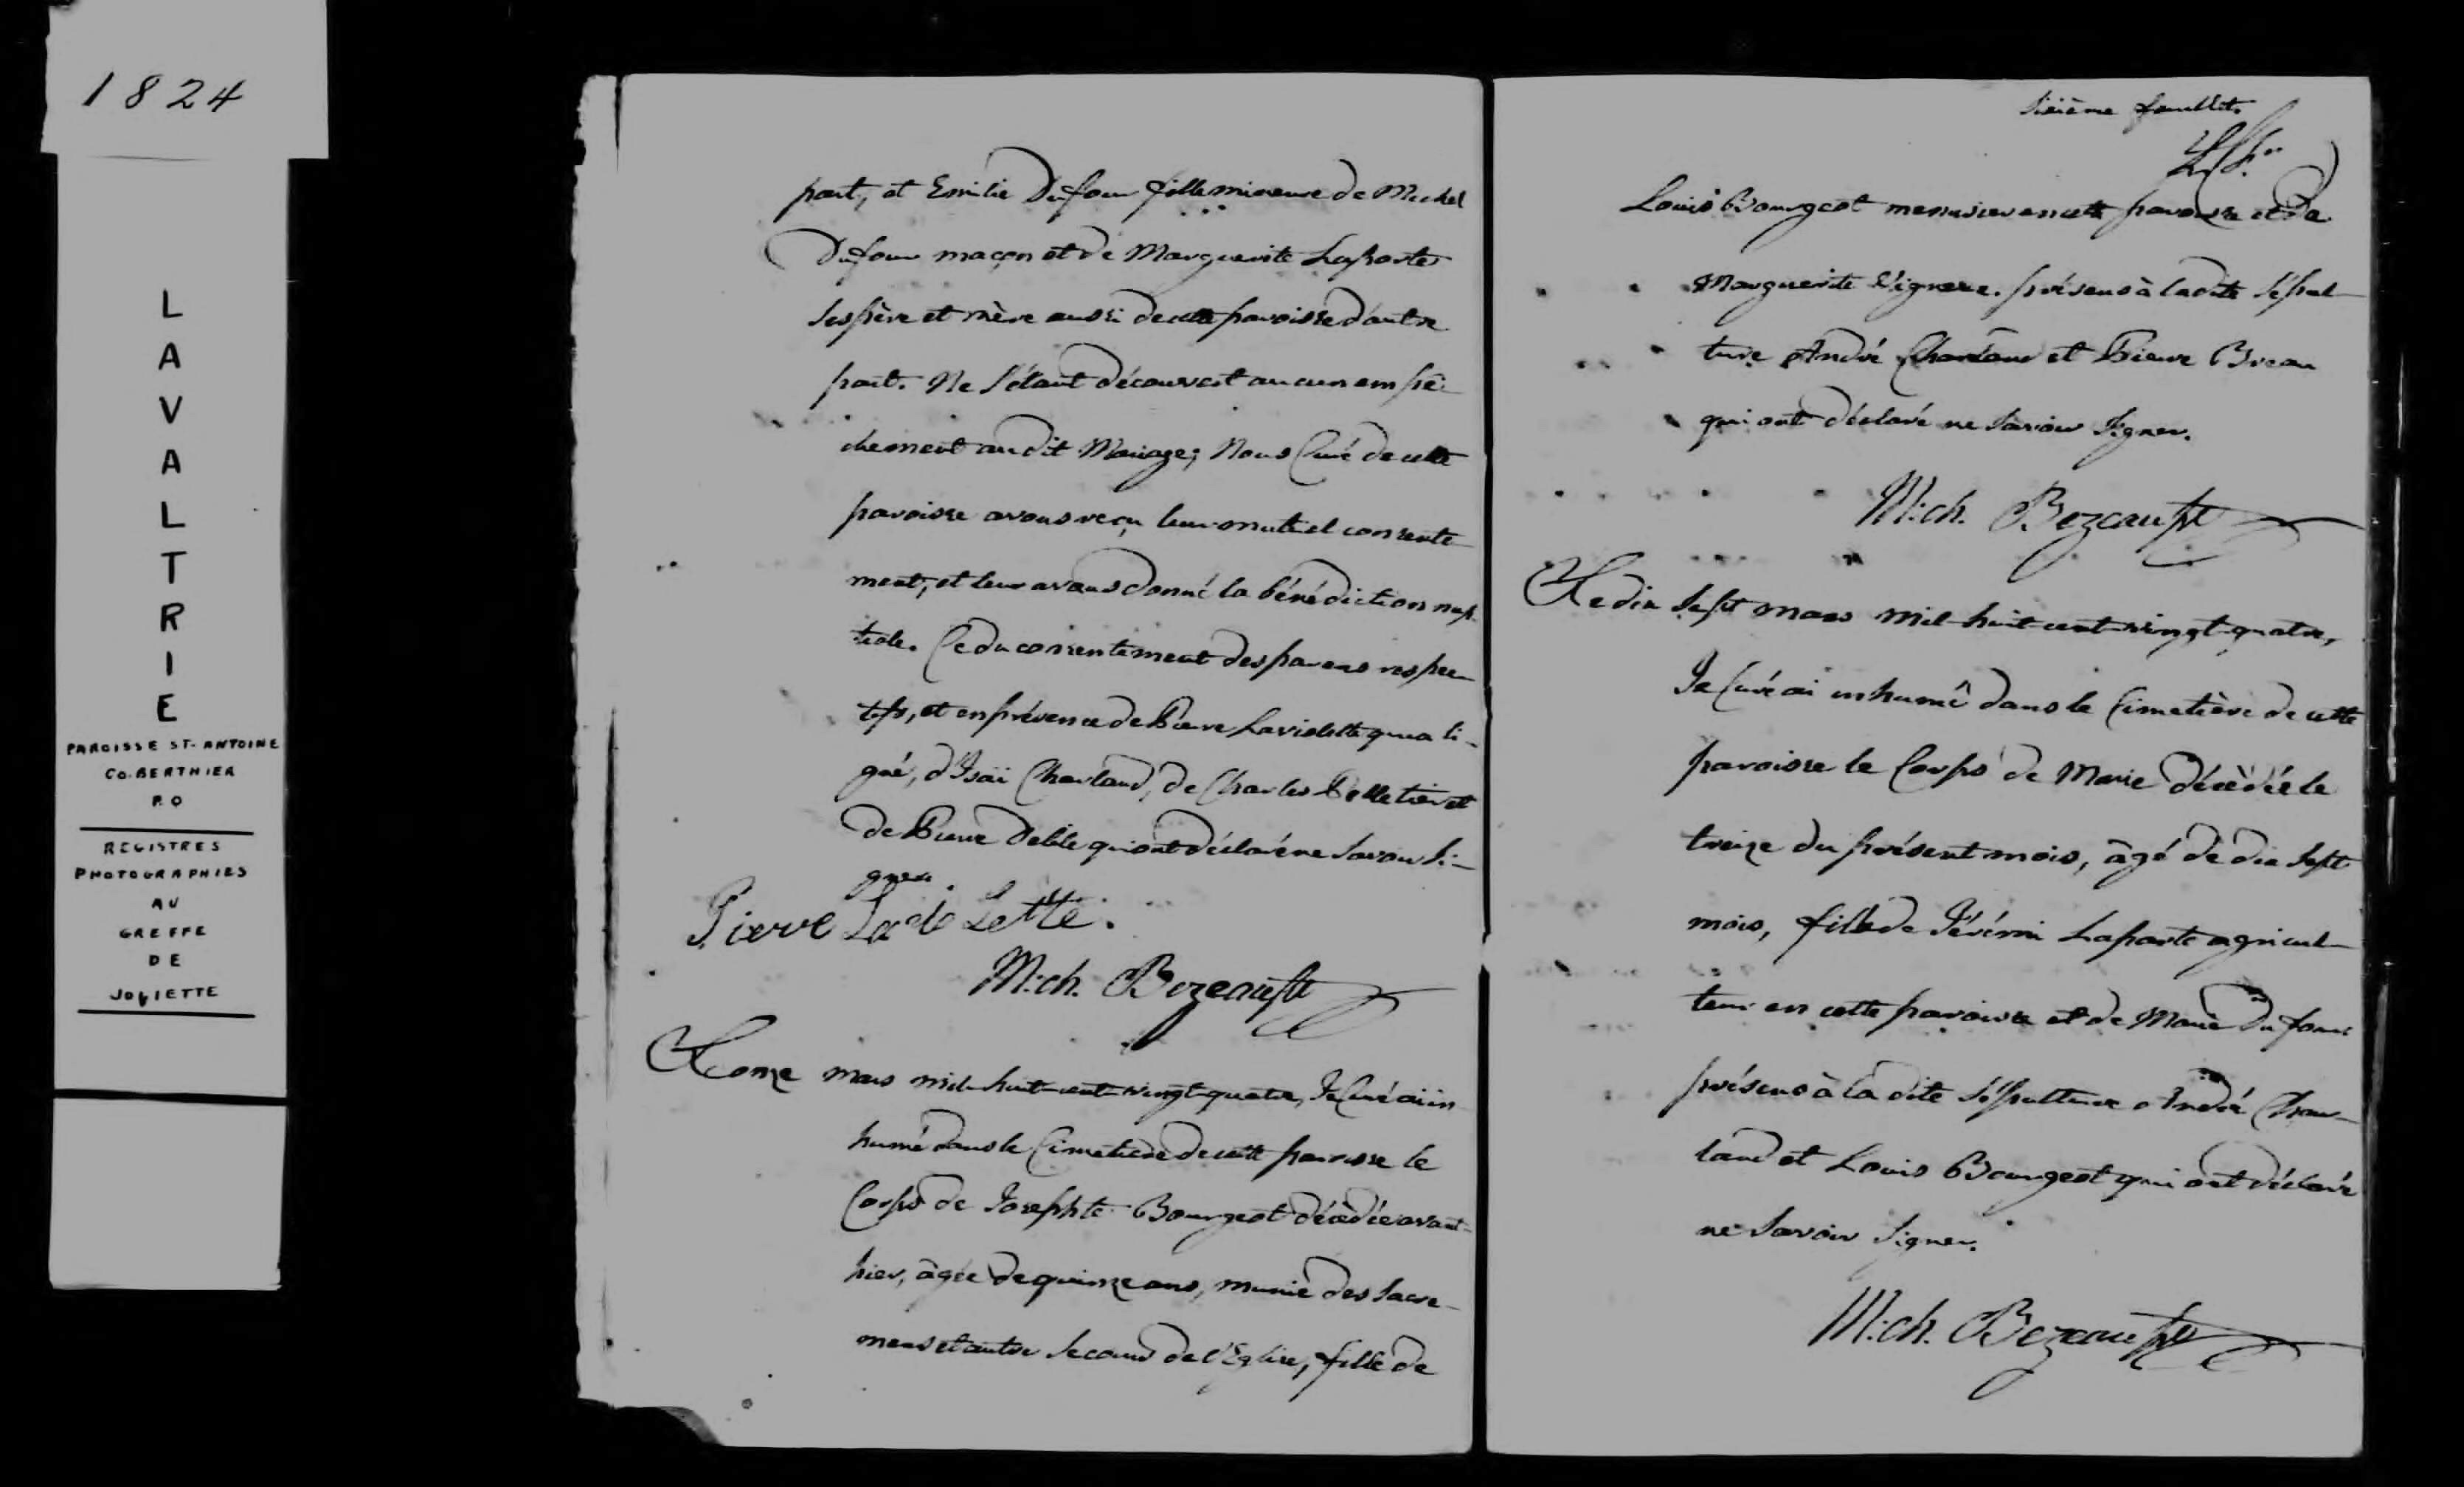 1824
L
A
V
A
L
T
R
I
E
PAROISSE ST-ANTOINE
CO. BERTHIER
P.Q
REGISTRES
PHOTOGRAPHIES
AU
GREFFE
DE
JOLIETTE
part, et Emilie Dufour fille mineure de Michel
Dufour maçon et de Marguerite Laporte
ses père et mère aussi de cette paroisse d'autre
part. Ne s'étant découvert aucun empê-
chement au dit Mariage; Nous Curé de cette
paroisse avons reçu leur mutuel consente-
ment, et leur avons donné la bénédiction nup-
tiale. Ce du consentement des parens respec-
tifs, et en présence de Pierre Laviolette qui a si-
gné, d'Isaï Charland, de Charles Pelletier et
de Pierre Delile qui ont déclaré ne savoir si-
gner.
Pierre Lavio Lette.
M: ch. Bezeau ptr
Le onze mars mil-huit-cent-vingt-quatre, Je Curé ai in
humé dans le Cimetière de cette paroisse le
Corps de Josephte Bourgeot décèdée avant-
hier, âgée de quinze ans, munie des sacre-
mens et autre secours de l'Eglise, fille de
sixième feuillet.
Louis Bourgeot menuisier en cette paroisse et de
Marguerite présens à la dite sépul-
ture André Charland et Pierre Breau
qui ont déclaré ne savoir signer.
M: ch. Bezeau ptr
Le dix sept mars mil-huit-cent-vingt-quatre,
Je Curé ai inhumé dans le Cimetière de cette
paroisse le Corps de Marie décèdée le
treize du présent mois, âgé de dix sept
mois, fille de Sévérin Laporte agricul-
teur en cette paroisse et de Marie Dufour
présens à la dite sépulture André Char-
land et Louis Bourgeot qui ont déclaré
ne savoir signer.
M: ch. Bezeau ptr